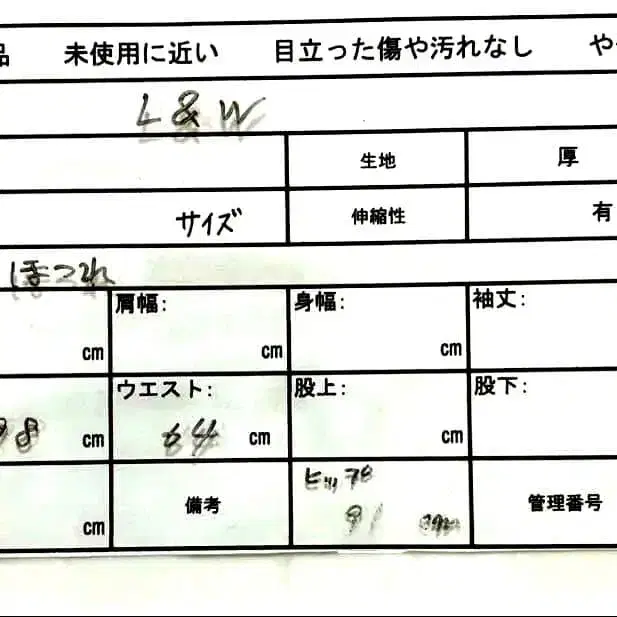 品 未使用に近い 目立った傷や汚れなし や
L & W
生地 厚
サイズ 伸縮性 有
ほつれ
肩幅: 身幅: 袖丈:
cm cm cm
ウエスト: 股上: 股下:
98 cm 64 cm cm
ヒップ
cm 備考 91 cm 管理番号